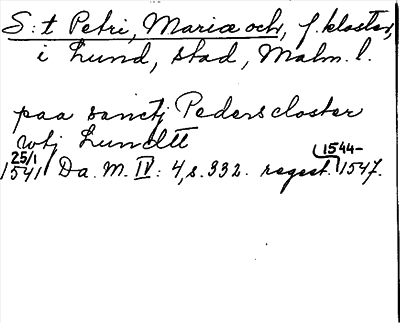 S:t Petri, Mariæ och, f. kloster,
i Lund, stad, Malm. l.
paa sanctj Pederscloster
wtj Lundtt
25/1 1541 Da. M. IV: 4, s. 332. regest. 1544-1547.